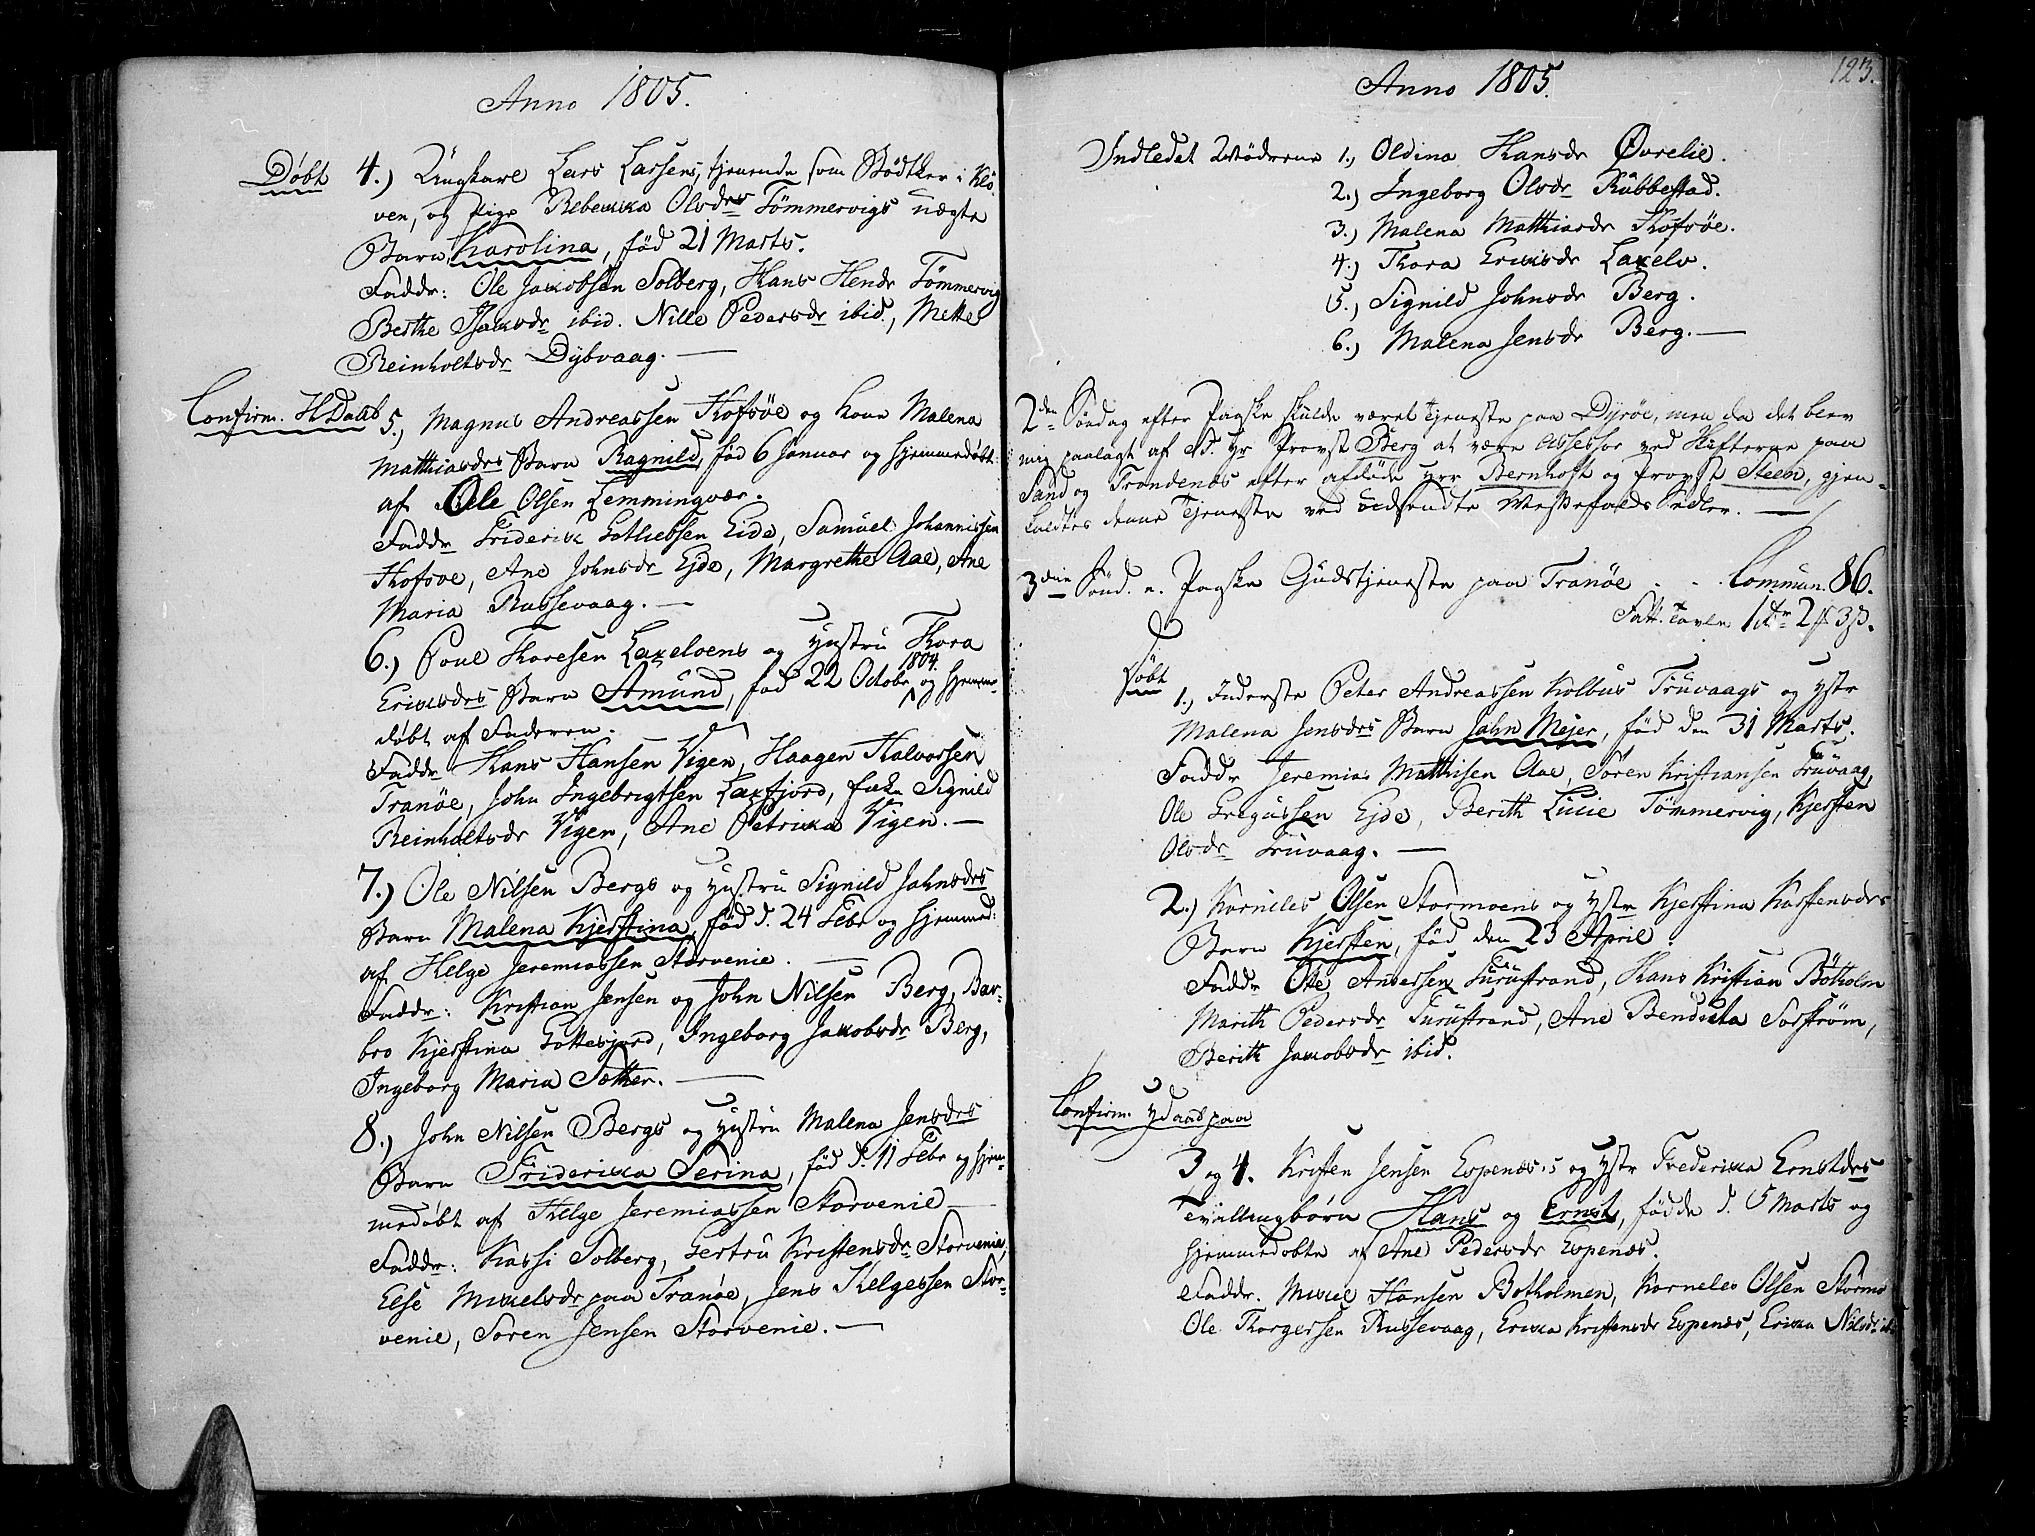 Anno 1805.
Døbt 4.) Ungkarl Lars Larsens, tjenende som Bødtker i Klö
ven, og Pige Rebekka Olsdrs Tömmervigs uægte
Barn, Karolina, föd 21 Marts.
Faddr: Ole Jakobsen Solberg, Hans Hendr Tömmervig
Berthe Isaksdr ibid. Nille Pedersdr ibid, Mette
Reinholtsdr Dybvaag.
Confirm. H Daab 5., Magnus Andreassen Kofsöe og kone Malena
Matthiasdrs Barn Ragnild, föd 6 Januar og hjemmedöbt
af Ole Olsen Lemmingvær.
Faddr Friderik Gotliebsen Eide, Samuel Johannissen
Kofsöe, Ane Johnsdr Ejde, Margrethe Aae, Ane
Maria Russevaag.
6.) Poul Thoresen Laxelvens og Hustru Thora
Eriksdrs Barn Amund, föd 22 Octobr 1804. og hjemme-
döbt af Faderen.
Faddr Hans Hansen Vigen, Haagen Halvorsen
Tranöe, John Ingebrigtsen Laxfjord, Signild
Reinholtsdr Vigen, Ane Petrikka Vigen.
7.) Ole Nilsen Bergs og Hustru Signild Johnsdrs
Barn Malena Kjerstina, föd d. 24 Febr og hjemmed:
af Helge Jeremiassen Storvenie.
Faddr: Kristian Jensen og John Nilsen Berg, Bar-
bro Kjerstina Gottesjord, Ingeborg Jakobsdr Berg,
Ingeborg Maria Sæther.
8.) John Nilsen Bergs og Hustru Malena Jensdrs
Barn Friderikka Serina, föd d. 11 Febr og hjem-
medöbt af Helge Jeremiassen Storvenie
Faddr: Kassi Solberg, Gertru Kristensdr Storvenie,
Else Mikkelsdr paa Tranöe, Jens Helgessen Stor-
venie, Sören Jensen Storvenie.
123.
Anno 1805.
Indledet Mödrene 1.) Oldina Hansdr Øvrelie.
2.) Ingeborg Olsdr Rubbestad.
3.) Malena Matthiasdr Kofsöe.
4.) Thora Eriksdr Laxelv.
5.) Signild Johnsdr Berg.
6.) Malena Jensdr Berg.
2den Söndag efter Paaske skulde været Tjeneste paa Dyröe, men da det blev
mig paalagt af S. Hr Provst Berg at være Assessor ved Skifterne paa
Sand og Trondenes efter afdöde Herr Bernhoft og Provst Steen, gjen-
kaldtes denne Tjeneste ved udsendte Messefalds Sedler.
3die Sönd. e. Paaske Gudstjeneste paa Tranöe - - Commun. 86.
Fatt. Tavle 1 dr 2 # 3 ß.
Döbt
1.) Inderste Peter Andreassen Kolbus Truvaags og Hstr
Malena Jensdrs Barn John Mejer, föd den 31 Marts.
Faddr Jeremias Mathisen Aae, Sören Kristiansen Truvaag,
Ole Gregussen Ejde, Berith Lucie Tömmervig, Kjersten
Olsdr Truvaag.
2.) Korneles Olsen Stormoens og Hstr Kjerstina Karstensdrs
Barn Kjersten, föd den 23 April.
Faddr Ole Andersen Furustrand, Hans Kristian Bötholm
Marith Pedersdr Furustrand, Ane Bendicta Sorström,
Berith Jakobsdr ibid.
Confirm. Hdaab paa
3 og 4. Kristen Jensen Espenæs's og Hstr Frederikka Ernstdrs
Tvillingbörn Hans og Ernst, födde d. 5 Marts og
hjemmedöbte af Ane Pedersdr Espenæs.
Faddr. Mikkel Hansen Botholmen, Korneles Olsen Stormo
Ole Thorgersen Russevaag, Erikka Kristensdr Espenæs, Erikka Nilsdr ib.